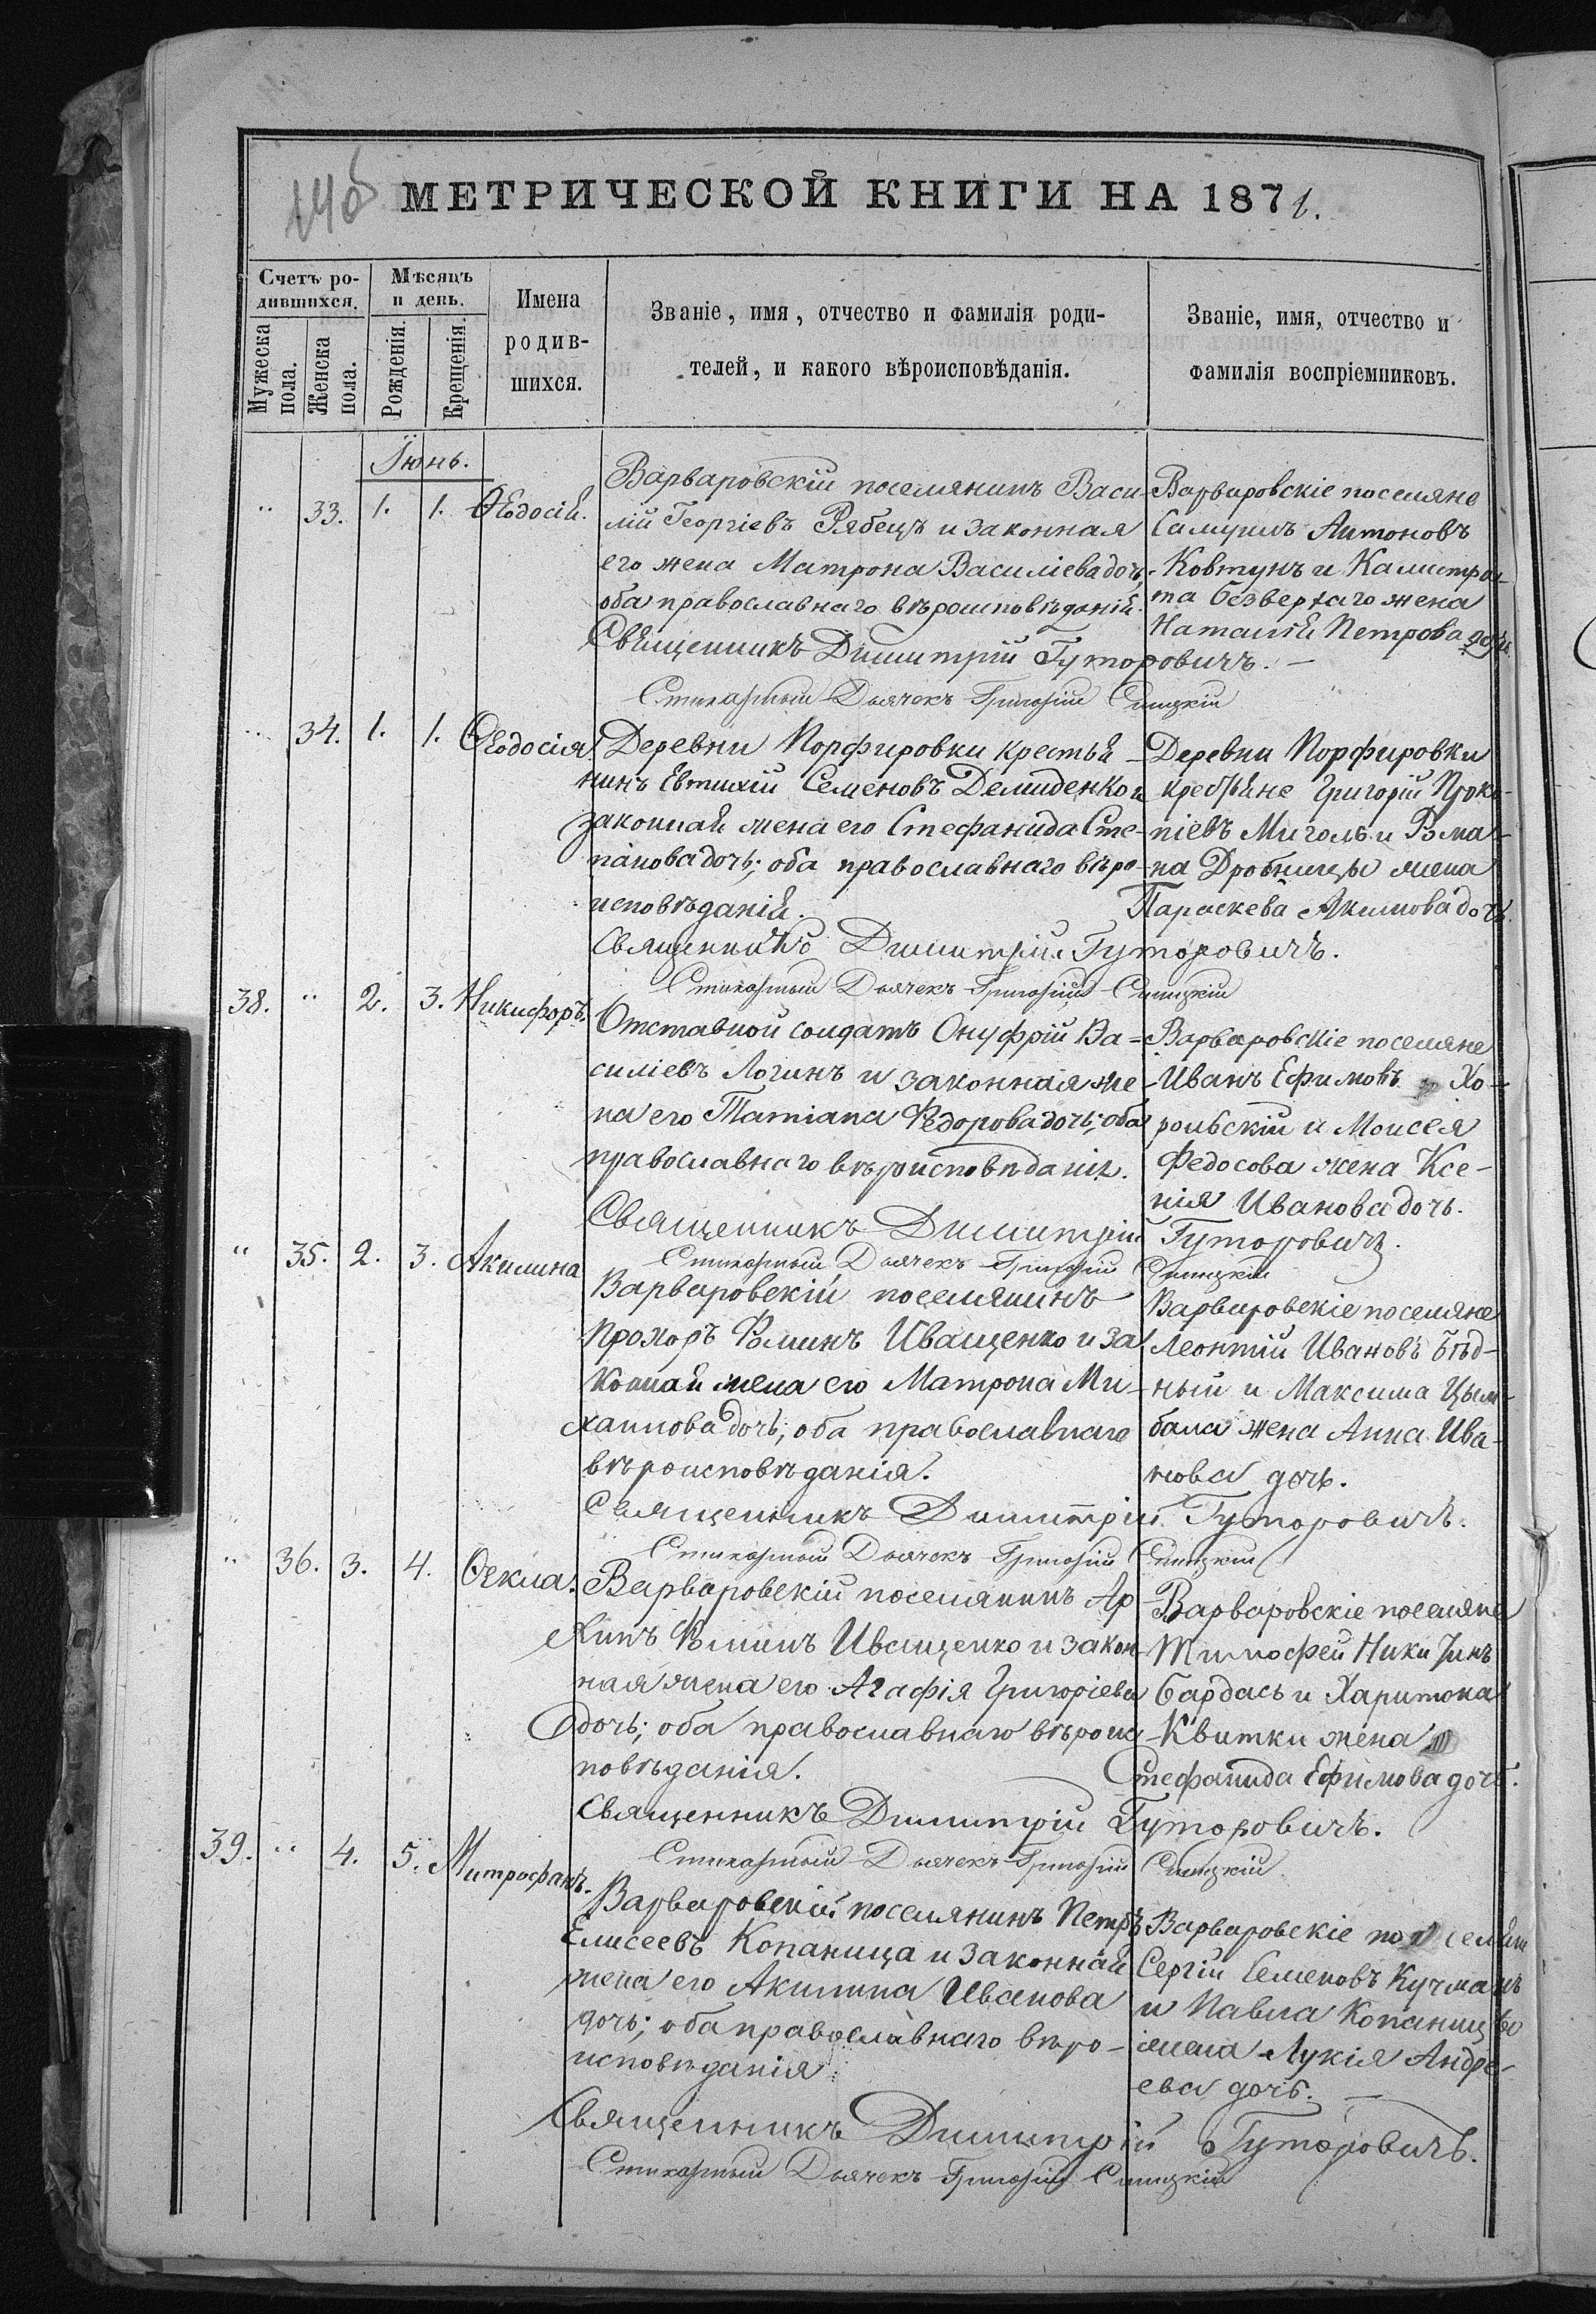 МЕТРИЧЕСКОЙ КНИГИ НА 1871.
Счетъ родившихся.
Мѣсяцъ и день.
Имена родившихся.
Званіе, имя, отчество и фамилія роди-
телей, и какого вѣроисповѣданія.
Званіе, имя, отчество и
фамилія воспріемниковъ.
Мужеска пола.
Женска пола.
Рожденія.
Крещенія.
Іюнь.
" 33. 1. 1. Ѳеодосія.
Варваровскій поселянинъ Васи-
лій Георгіевъ Рябецъ и законная
его жена Матрона Василіева дочь,
оба православнаго вѣроисповѣданія.
Варваровскіе поселяне
Самуилъ Антоновъ
Ковтунъ и Калистра-
та Безверхаго жена
Наталія Петрова дочь.
Священникъ Димитрій Гуторовичъ.
Стихарный Дьячекъ Григорій
" 34. 1. 1. Ѳеодосія
Деревни Порфировки крестья-
нинъ Евтихій Семеновъ Демиденко и
законная жена его Стефанида Сте-
панова дочь; оба православнаго вѣро-
исповѣданія.
Деревни Порфировки
крестьяне Григорій Проко-
піевъ Миголь и Рома-
на Дробницы жена
Параскева Акимова дочь.
Священникъ Димитрій Гуторовичъ.
Стихарный Дьячекъ Григорій
38. " 2. 3. Никифоръ.
Отставной солдатъ Онуфрій Ва-
силіевъ Логинъ и законная же-
на его Татіана Федорова дочь; оба
православнаго вѣроисповѣданія.
Варваровскіе поселяне
Иванъ Ефимовъ Хо-
рольскій и Моисея
Федосова жена Ксе-
нія Иванова дочь.
Священникъ Димитрій Гуторовичъ.
Стихарный Дьячекъ Григорій
" 35. 2. 3. Акилина
Варваровскій поселянинъ
Прохоръ Фоминъ Иващенко и за
конная жена его Матрона Ми-
хаилова дочь; оба православнаго
вѣроисповѣданія.
Варваровскіе поселяне
Леонтій Ивановъ Бѣд-
ный и Максима Цым-
бала жена Анна Ива-
нова дочь.
Священникъ Димитрій Гуторовичъ.
Стихарный Дьячекъ Григорій
" 36. 3. 4. Ѳекла.
Варваровскій поселянинъ Ар
хипъ Фоминъ Иващенко и закон-
ная жена его Агафія Григоріева
дочь; оба православнаго вѣроис
повѣданія.
Варваровскіе поселяне
Тимофей Никитинъ
Бардась и Харитона
Квитки жена
Стефанида Ефимова дочь.
Священникъ Димитрій Гуторовичъ.
Стихарный Дьячекъ Григорій
39. " 4. 5. Митрофанъ.
Варваровскій поселянинъ Петръ
Елисеевъ Копаница и законная
жена его Акилина Иванова
дочь; оба православнаго вѣро-
исповѣданія.
Варваровскіе поселяне
Сергій Семеновъ Кучманъ
и Павла Копаницы
жена Лукія Андре-
ева дочь.
Священникъ Димитрій Гуторовичъ.
Стихарный Дьячекъ Григорій